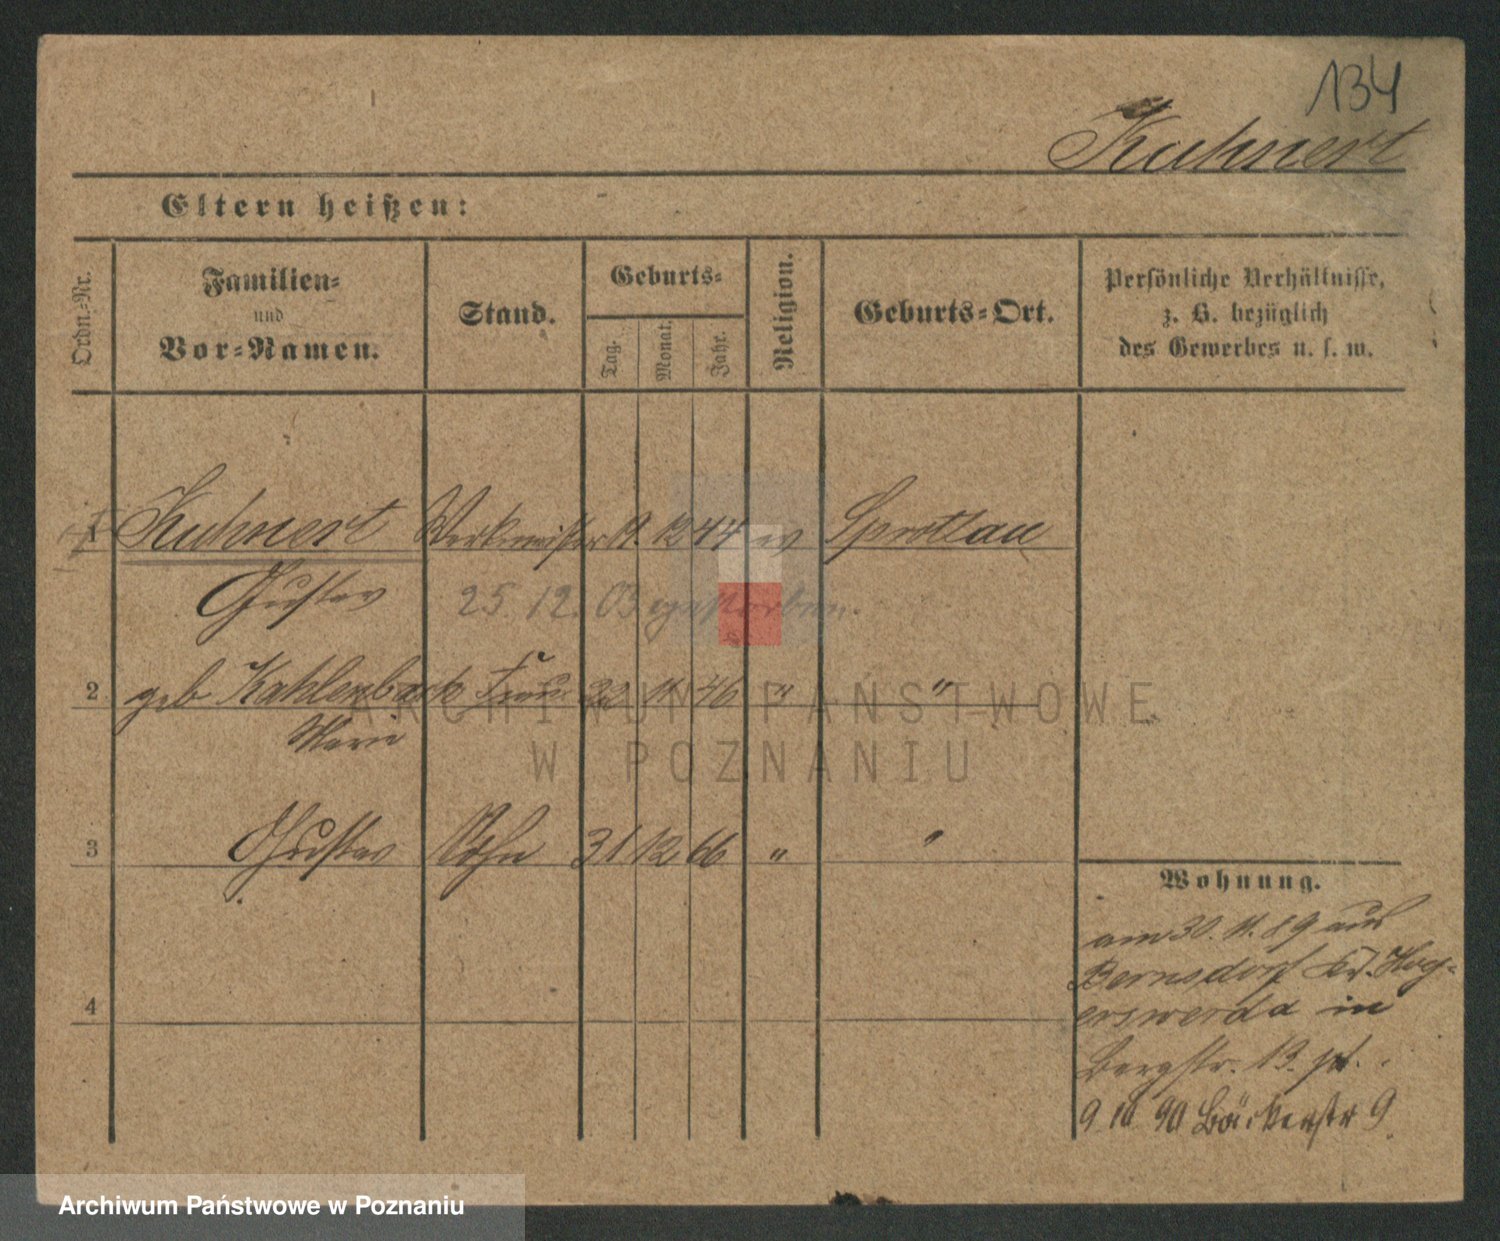 134
Kuhnert
Eltern heißen:
Ordn.-Nr.
Familien-
und
Vor-Namen.
Stand.
Geburts-
Tag.
Monat.
Jahr.
Religion.
Geburts-Ort.
Persönliche Verhältnisse,
z. B. bezüglich
des Gewerbes u. s. w.
1 Kuhnert Werkmeister 19. 12 44 ev Sprottau
Gustav 25 12. 03 gestorben.
2 geb Kahlenback Frau 22 11 46 " "
Marie
3 Gustav Sohn 31 12 66 " "
4
Wohnung.
am 30. 11. 89 aus
Bernsdorf Kr. Hoy-
erswerda in
Bergstr. 13. pt.
9 10 90 Bäckerstr 9
ARCHIWUM PAŃSTWOWE
W POZNANIU
Archiwum Państwowe w Poznaniu